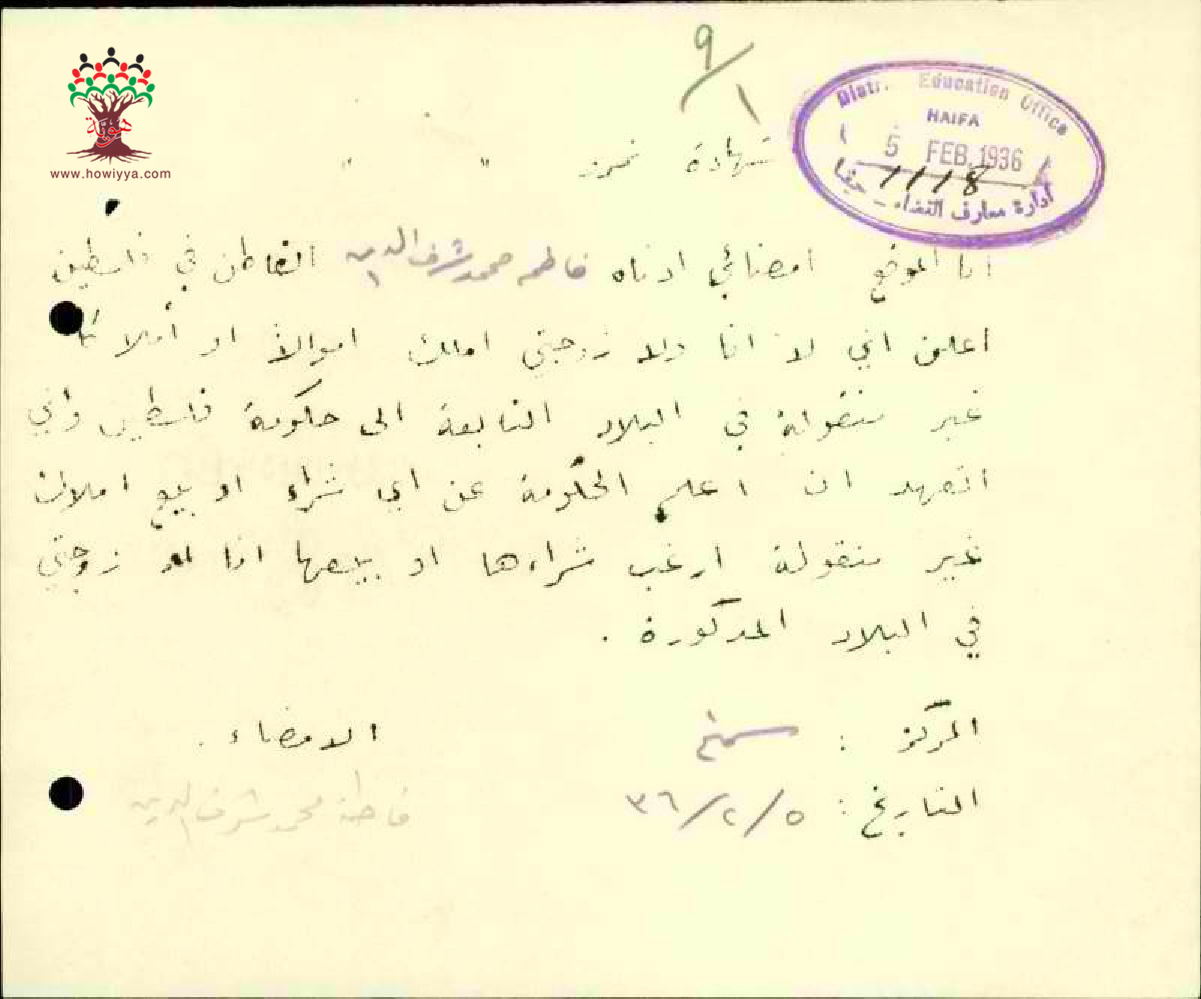 ٩/١
هوية
www.howiyya.com
District Education Office
HAIFA
5 FEB. 1936
1118
ادارة معارف القضاء - حيفا
شهادة نمرز " "
انا الموقع امضائي ادناه فاطمه محمد شرف الدين القاطن في فلسطين
اعلن اني لا انا ولا زوجتي املك اموالاً او أملاكا
غير منقولة في البلاد التابعة الى حكومة فلسطين واني
اتعهد ان اعلم الحكومة عن اي شراء او بيع املاك
غير منقولة ارغب شراءها او بيعها انا او زوجتي
في البلاد المذكورة .
المركز : سمخ
الامضاء .
التاريخ : ٣٦/٢/٥
فاطمة محمد شرف الدين